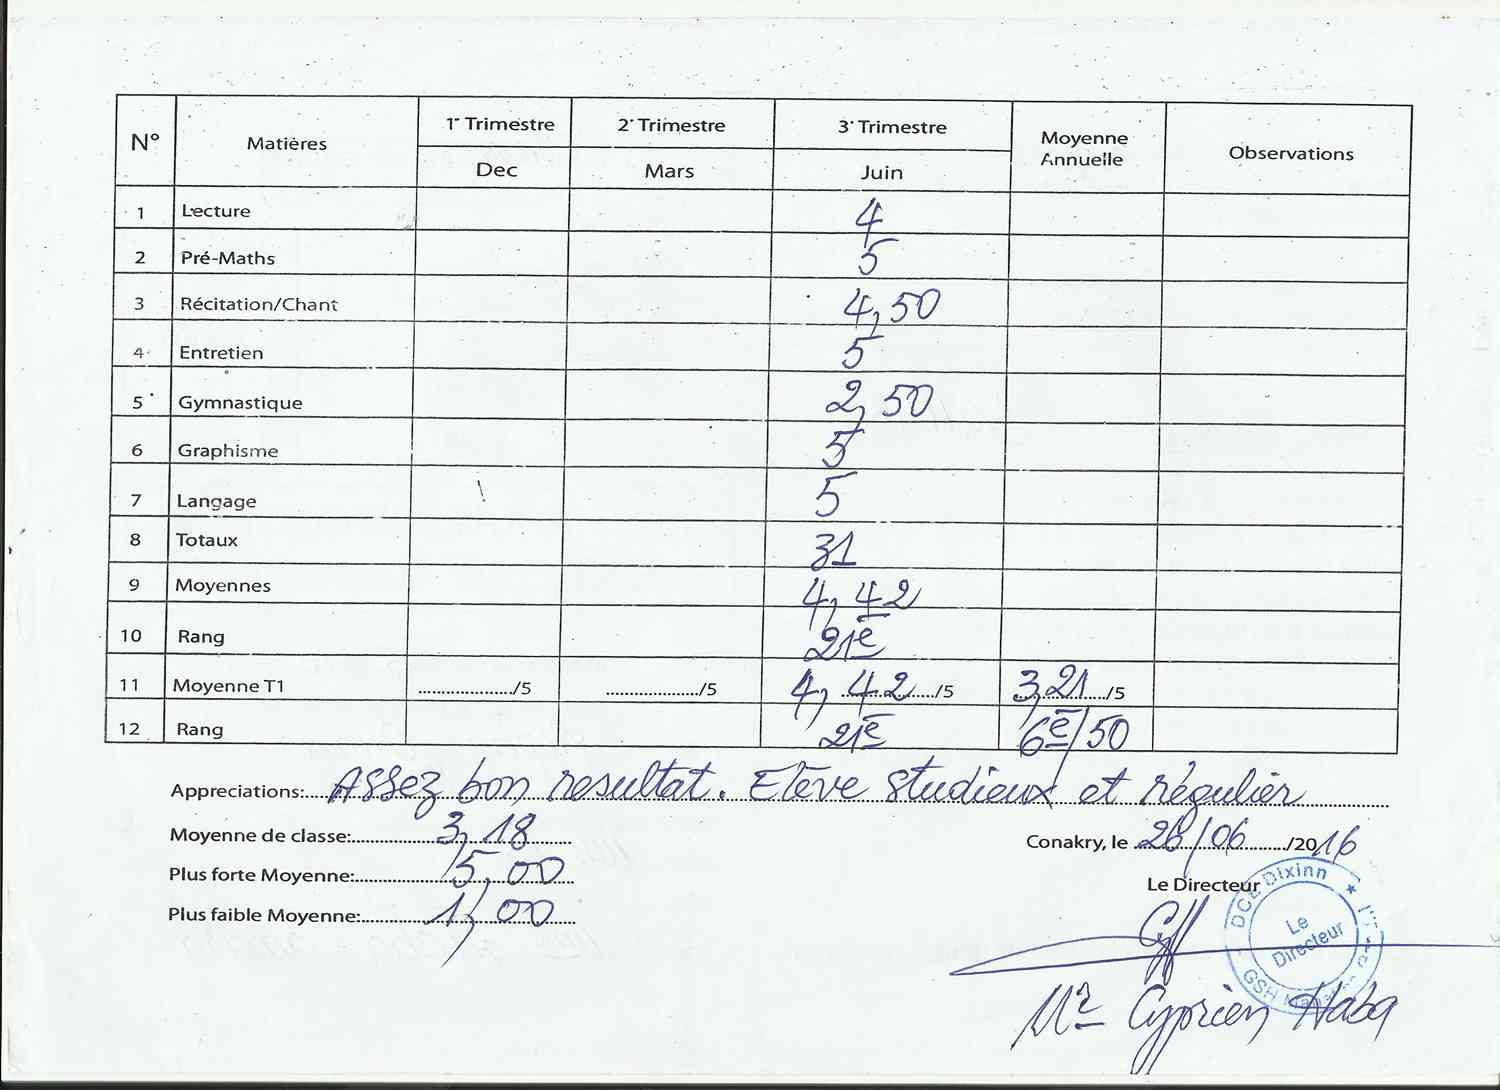 N° Matières 1er Trimestre 2e Trimestre 3e Trimestre Moyenne Annuelle Observations
Dec Mars Juin
1 Lecture 4
2 Pré-Maths 5
3 Récitation/Chant 4,50
4 Entretien 5
5 Gymnastique 2,50
6 Graphisme 5
7 Langage 5
8 Totaux 31
9 Moyennes 4,42
10 Rang 21e
11 Moyenne T1 ................../5 ................../5 4,42 /5 3,21 /5
12 Rang 21e 6e/50
Appreciations: Assez bon resultat. Elève studieux et régulier
Moyenne de classe: 3,18
Conakry, le 28/06 /2016
Plus forte Moyenne: 5,00
Le Directeur
Plus faible Moyenne: 1,00
DCE Dixinn
Le Directeur
GSH
Mr Cyprien Haba